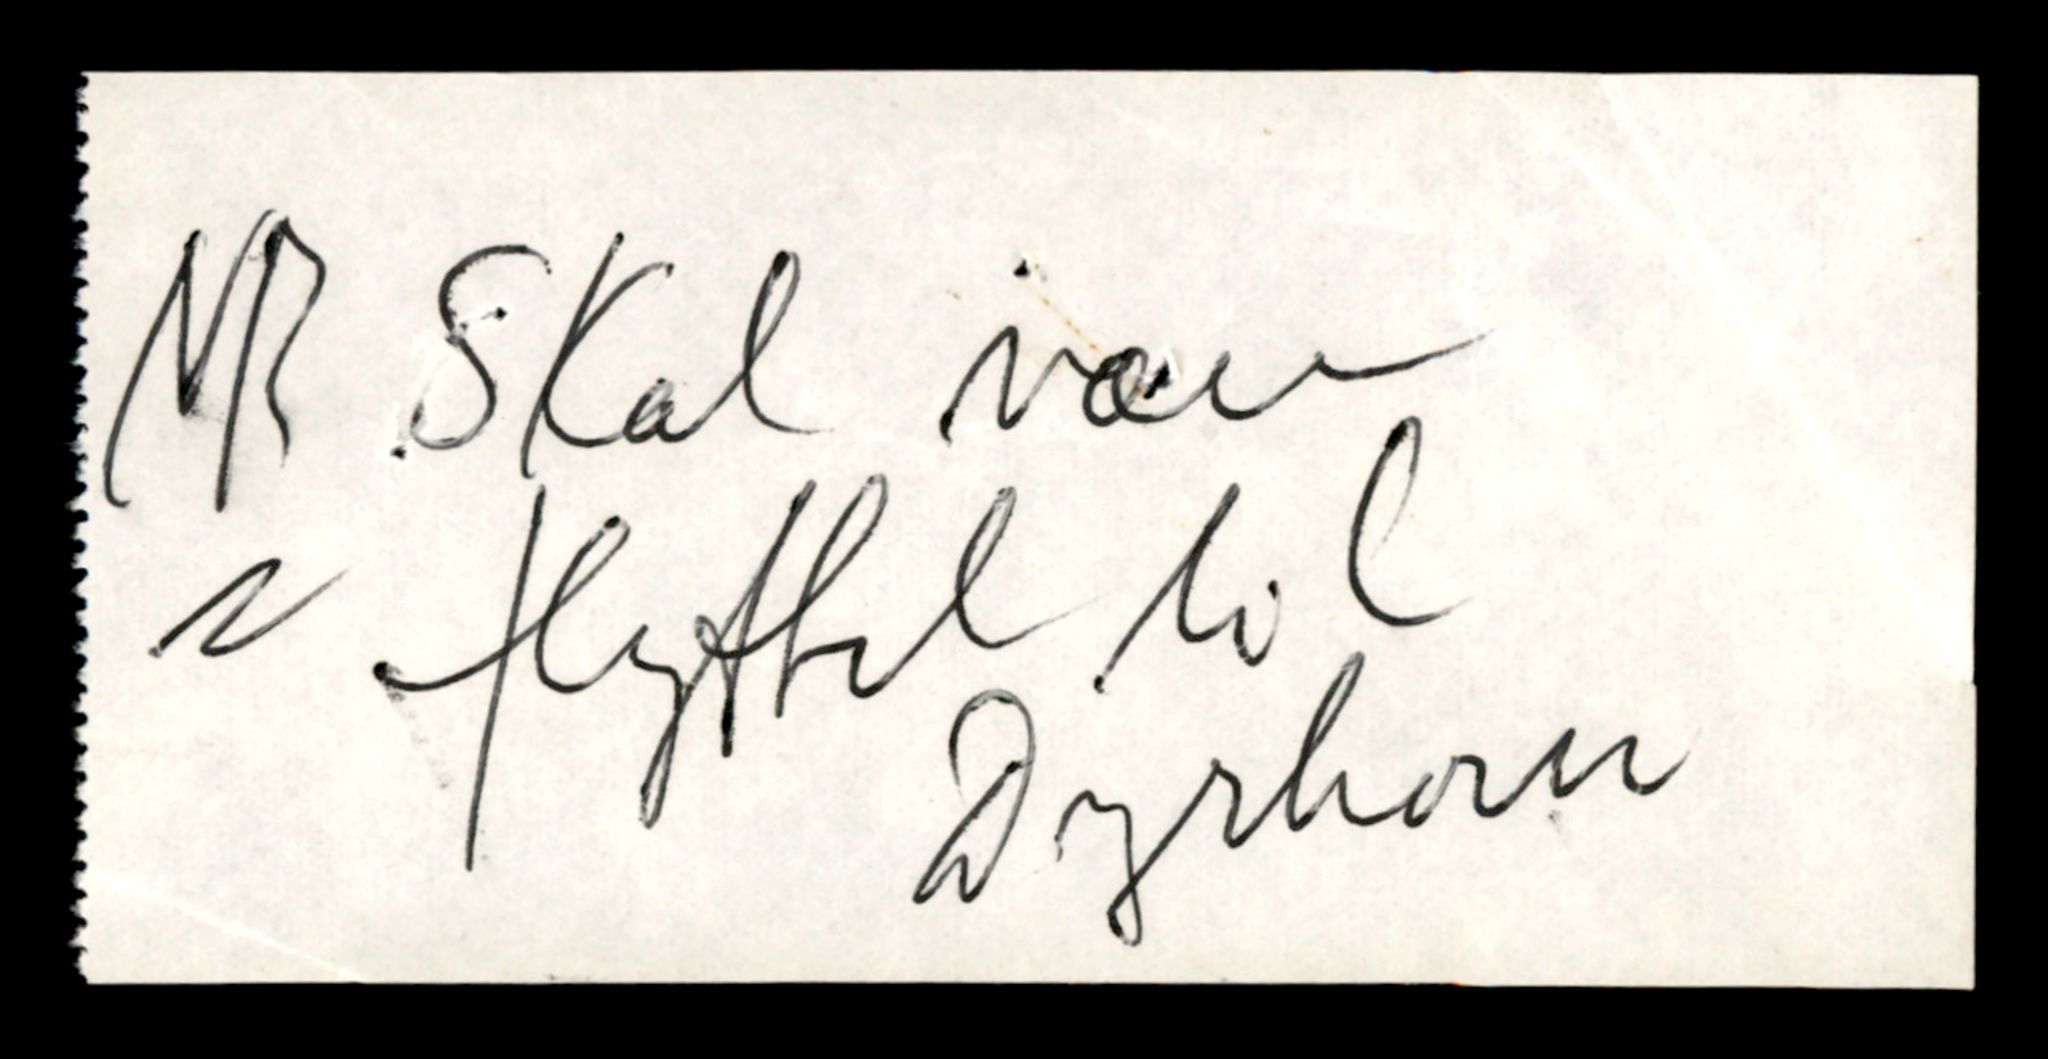 NB Skal være
flyttet til
Dyrhorn